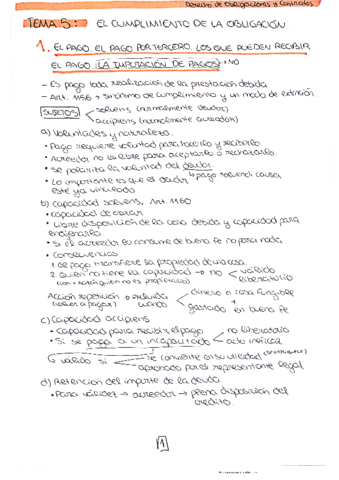 Derecho de Obligaciones y Contratos
TEMA 5: EL CUMPLIMIENTO DE LA OBLIGACIÓN
1. EL PAGO. EL PAGO POR TERCERO. LOS QUE PUEDEN RECIBIR
EL PAGO. LA IMPUTACIÓN DE PAGOS → NO
- Es pago toda realización de la prestación debida
- Art. 1156 → sinónimo de cumplimiento y un modo de extinción
SUJETOS → solvens (normalmente deudor)
→ accipiens (normalmente acreedor)
a) Voluntades y naturaleza.
• Pago requiere voluntad para hacerlo y recibirlo.
• Acreedor no es libre para aceptarlo o rechazarlo.
• Se ... la voluntad del deudor.
• Lo importante es que el deudor → pago solvendi causa
esté ya vinculado
b) Capacidad solvens. Art. 1160
• Capacidad de obrar
• Libre disposición de la cosa debida y capacidad para
enajenarla.
• Si el acreedor la consume de buena fe no pasa nada.
• Consecuencias
1. el pago transfiere la propiedad de una cosa.
2. quien no tiene la capacidad → no válido
liberatorio
(con + razón quien no es propietario)
Acción repetición → excluida cuando → dinero o cosa fungible
(volver a pagar) +
gastado en buena fe
c) Capacidad accipiens
• Capacidad para recibir el pago → no liberatorio
• Si se paga a un incapacitado → acto ineficaz
→ válido si → se convierte en su utilidad
aprobado por el representante legal
d) Retención del importe de la deuda.
• Para validez → acreedor → plena disposición del
crédito.
1